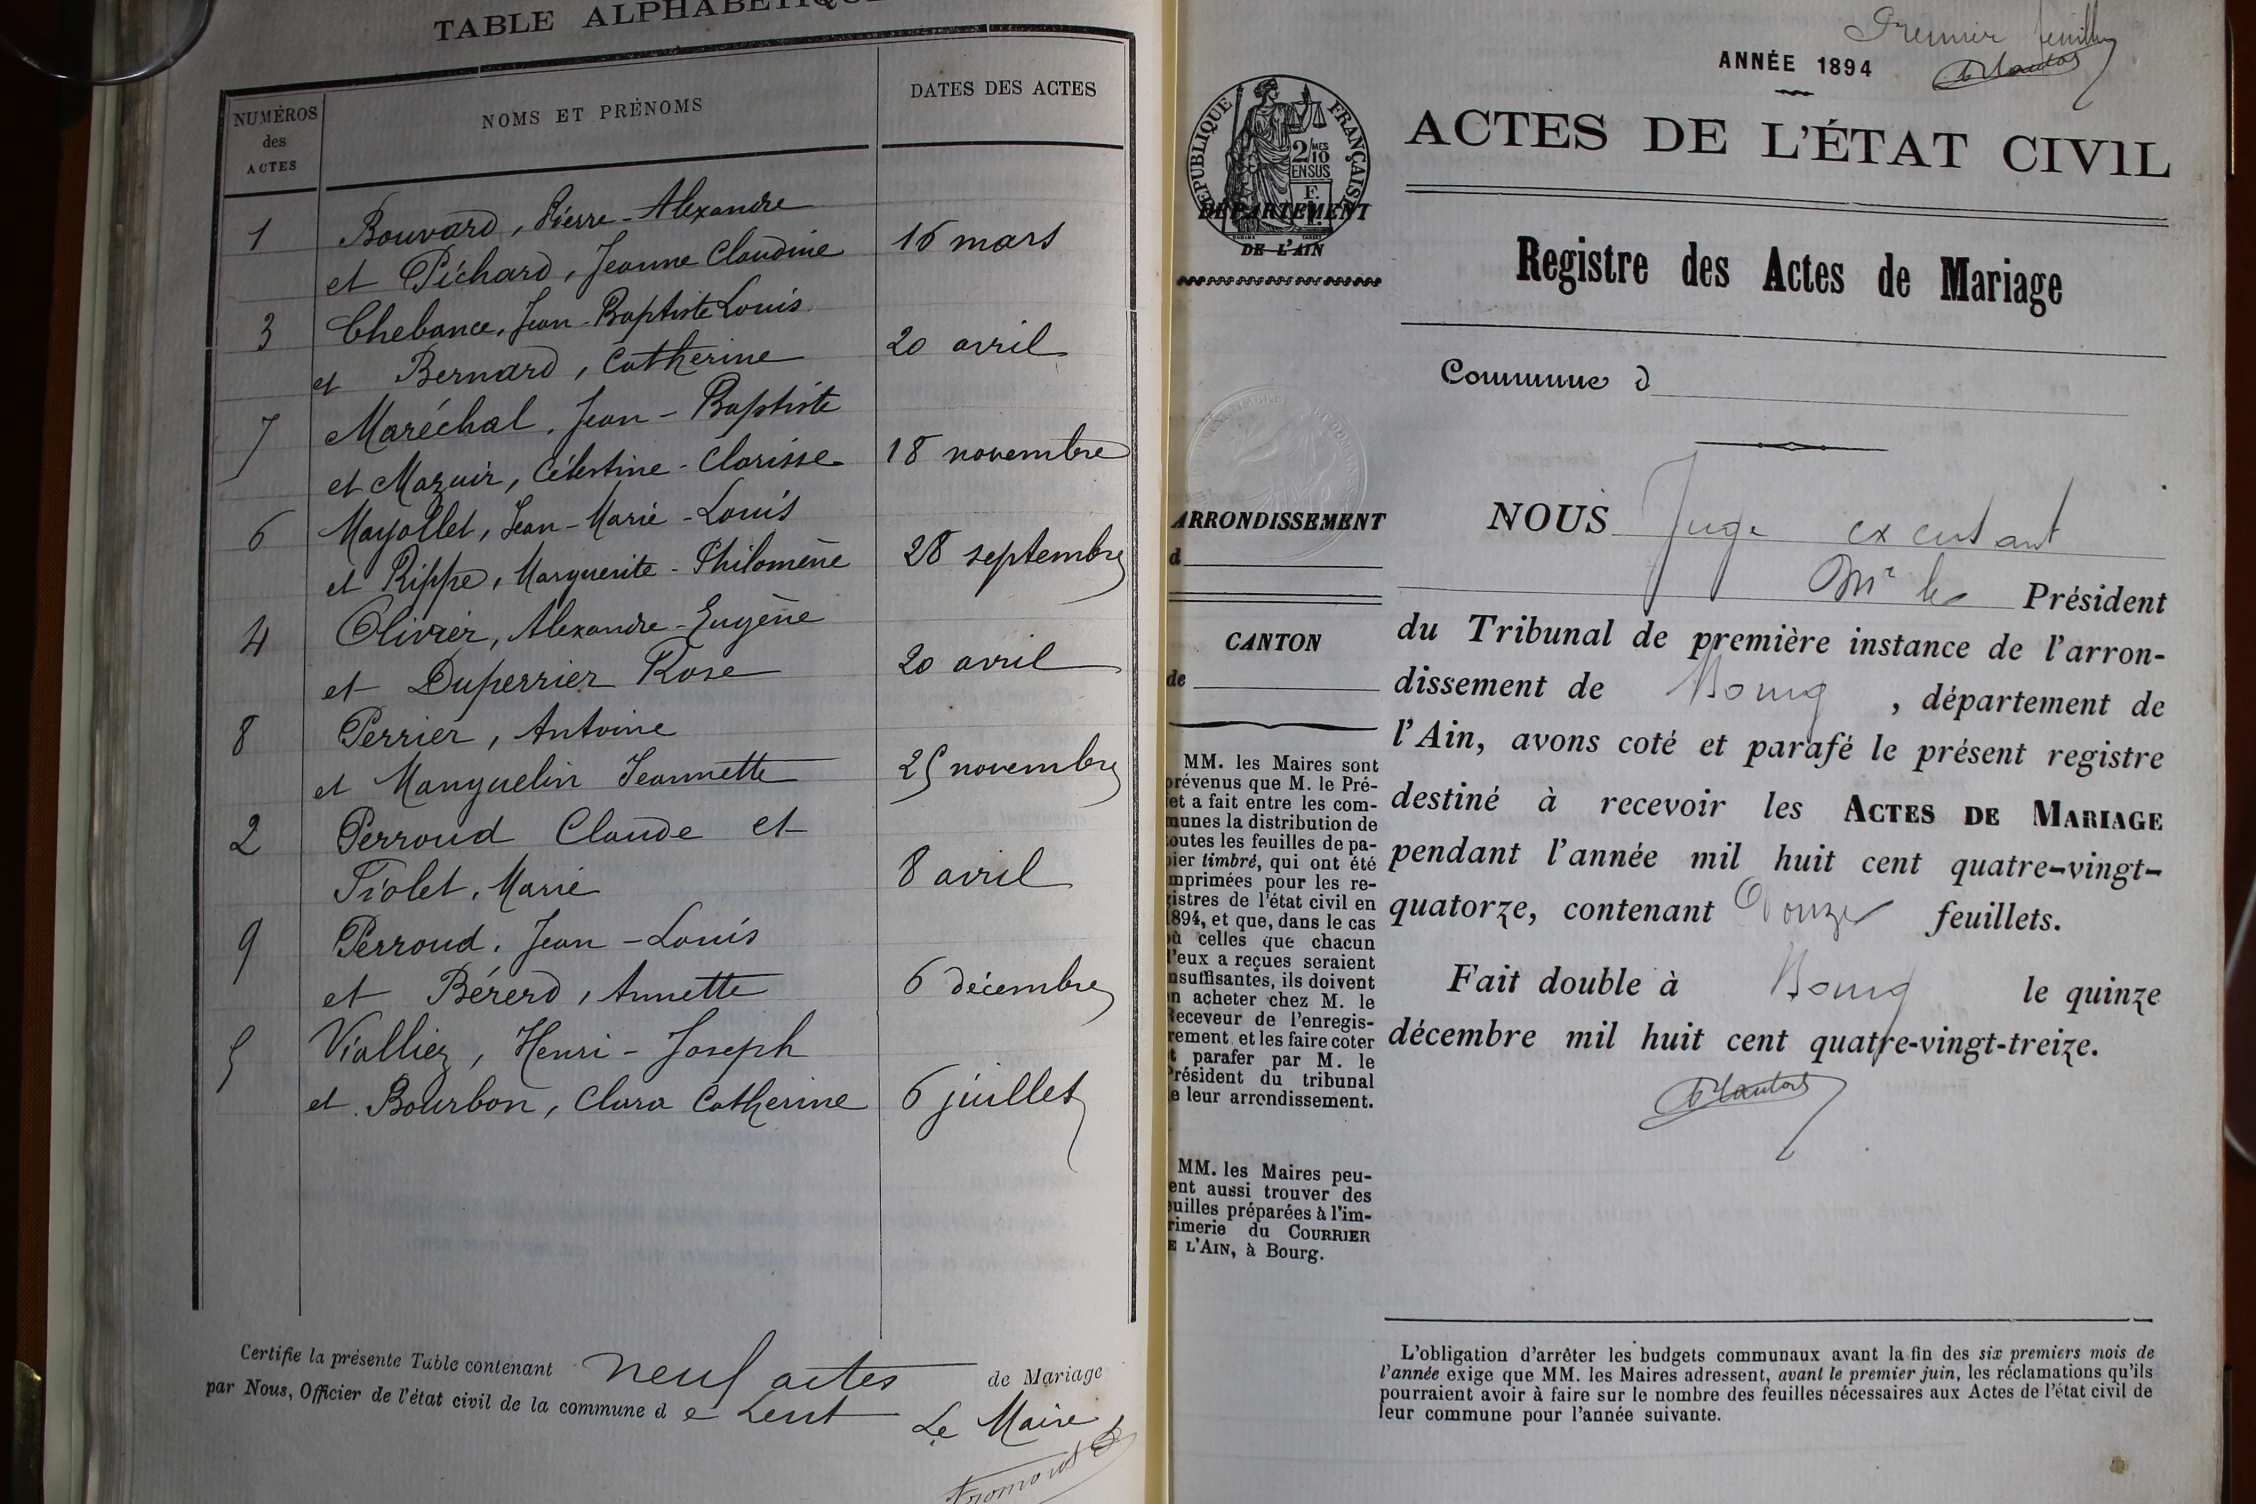 TABLE ALPHABÉTIQUE
NUMÉROS
des
ACTES
NOMS ET PRÉNOMS
DATES DES ACTES
1 Bouvard, Pierre-Alexandre
et Péchard, Jeanne Claudine 16 mars
3 Chebance, Jean-Baptiste Louis
et Bernard, Catherine 20 avril
7 Maréchal, Jean-Baptiste
et Mazuir, Célestine-Clarisse 18 novembre
6 Mayollet, Jean-Marie-Louis
et Rippe, Marguerite-Philomène 28 septembre
4 Olivier, Alexandre-Eugène
et Duperrier Rose 20 avril
8 Perrier, Antoine
et Manguelin Jeannette 25 novembre
2 Perroud Claude et
Tiolet, Marie 8 avril
9 Perroud, Jean-Louis
et Bérerd, Annette 6 décembre
5 Vialliez, Henri-Joseph
et Bourbon, Clara Catherine 6 juillet
Certifie la présente Table contenant neuf actes de Mariage
par Nous, Officier de l'état civil de la commune d e Lent
Le Maire
Premier feuillet
ANNÉE 1894
RÉPUBLIQUE FRANÇAISE
2/10 MES
EN SUS
ACTES DE L'ÉTAT CIVIL
DÉPARTEMENT
DE L'AIN
Registre des Actes de Mariage
Commune d
ARRONDISSEMENT
d
CANTON
de
MM. les Maires sont
prévenus que M. le Pré-
fet a fait entre les com-
munes la distribution de
toutes les feuilles de pa-
pier timbré, qui ont été
imprimées pour les re-
gistres de l'état civil en
1894, et que, dans le cas
où celles que chacun
d'eux a reçues seraient
insuffisantes, ils doivent
en acheter chez M. le
Receveur de l'enregis-
trement et les faire coter
et parafer par M. le
Président du tribunal
de leur arrondissement.
MM. les Maires peu-
vent aussi trouver des
feuilles préparées à l'im-
primerie du COURRIER
DE L'AIN, à Bourg.
NOUS Juge excusant
Mr le Président
du Tribunal de première instance de l'arron-
dissement de Bourg, département de
l'Ain, avons coté et parafé le présent registre
destiné à recevoir les ACTES DE MARIAGE
pendant l'année mil huit cent quatre-vingt-
quatorze, contenant Douze feuillets.
Fait double à Bourg le quinze
décembre mil huit cent quatre-vingt-treize.
L'obligation d'arrêter les budgets communaux avant la fin des six premiers mois de
l'année exige que MM. les Maires adressent, avant le premier juin, les réclamations qu'ils
pourraient avoir à faire sur le nombre des feuilles nécessaires aux Actes de l'état civil de
leur commune pour l'année suivante.